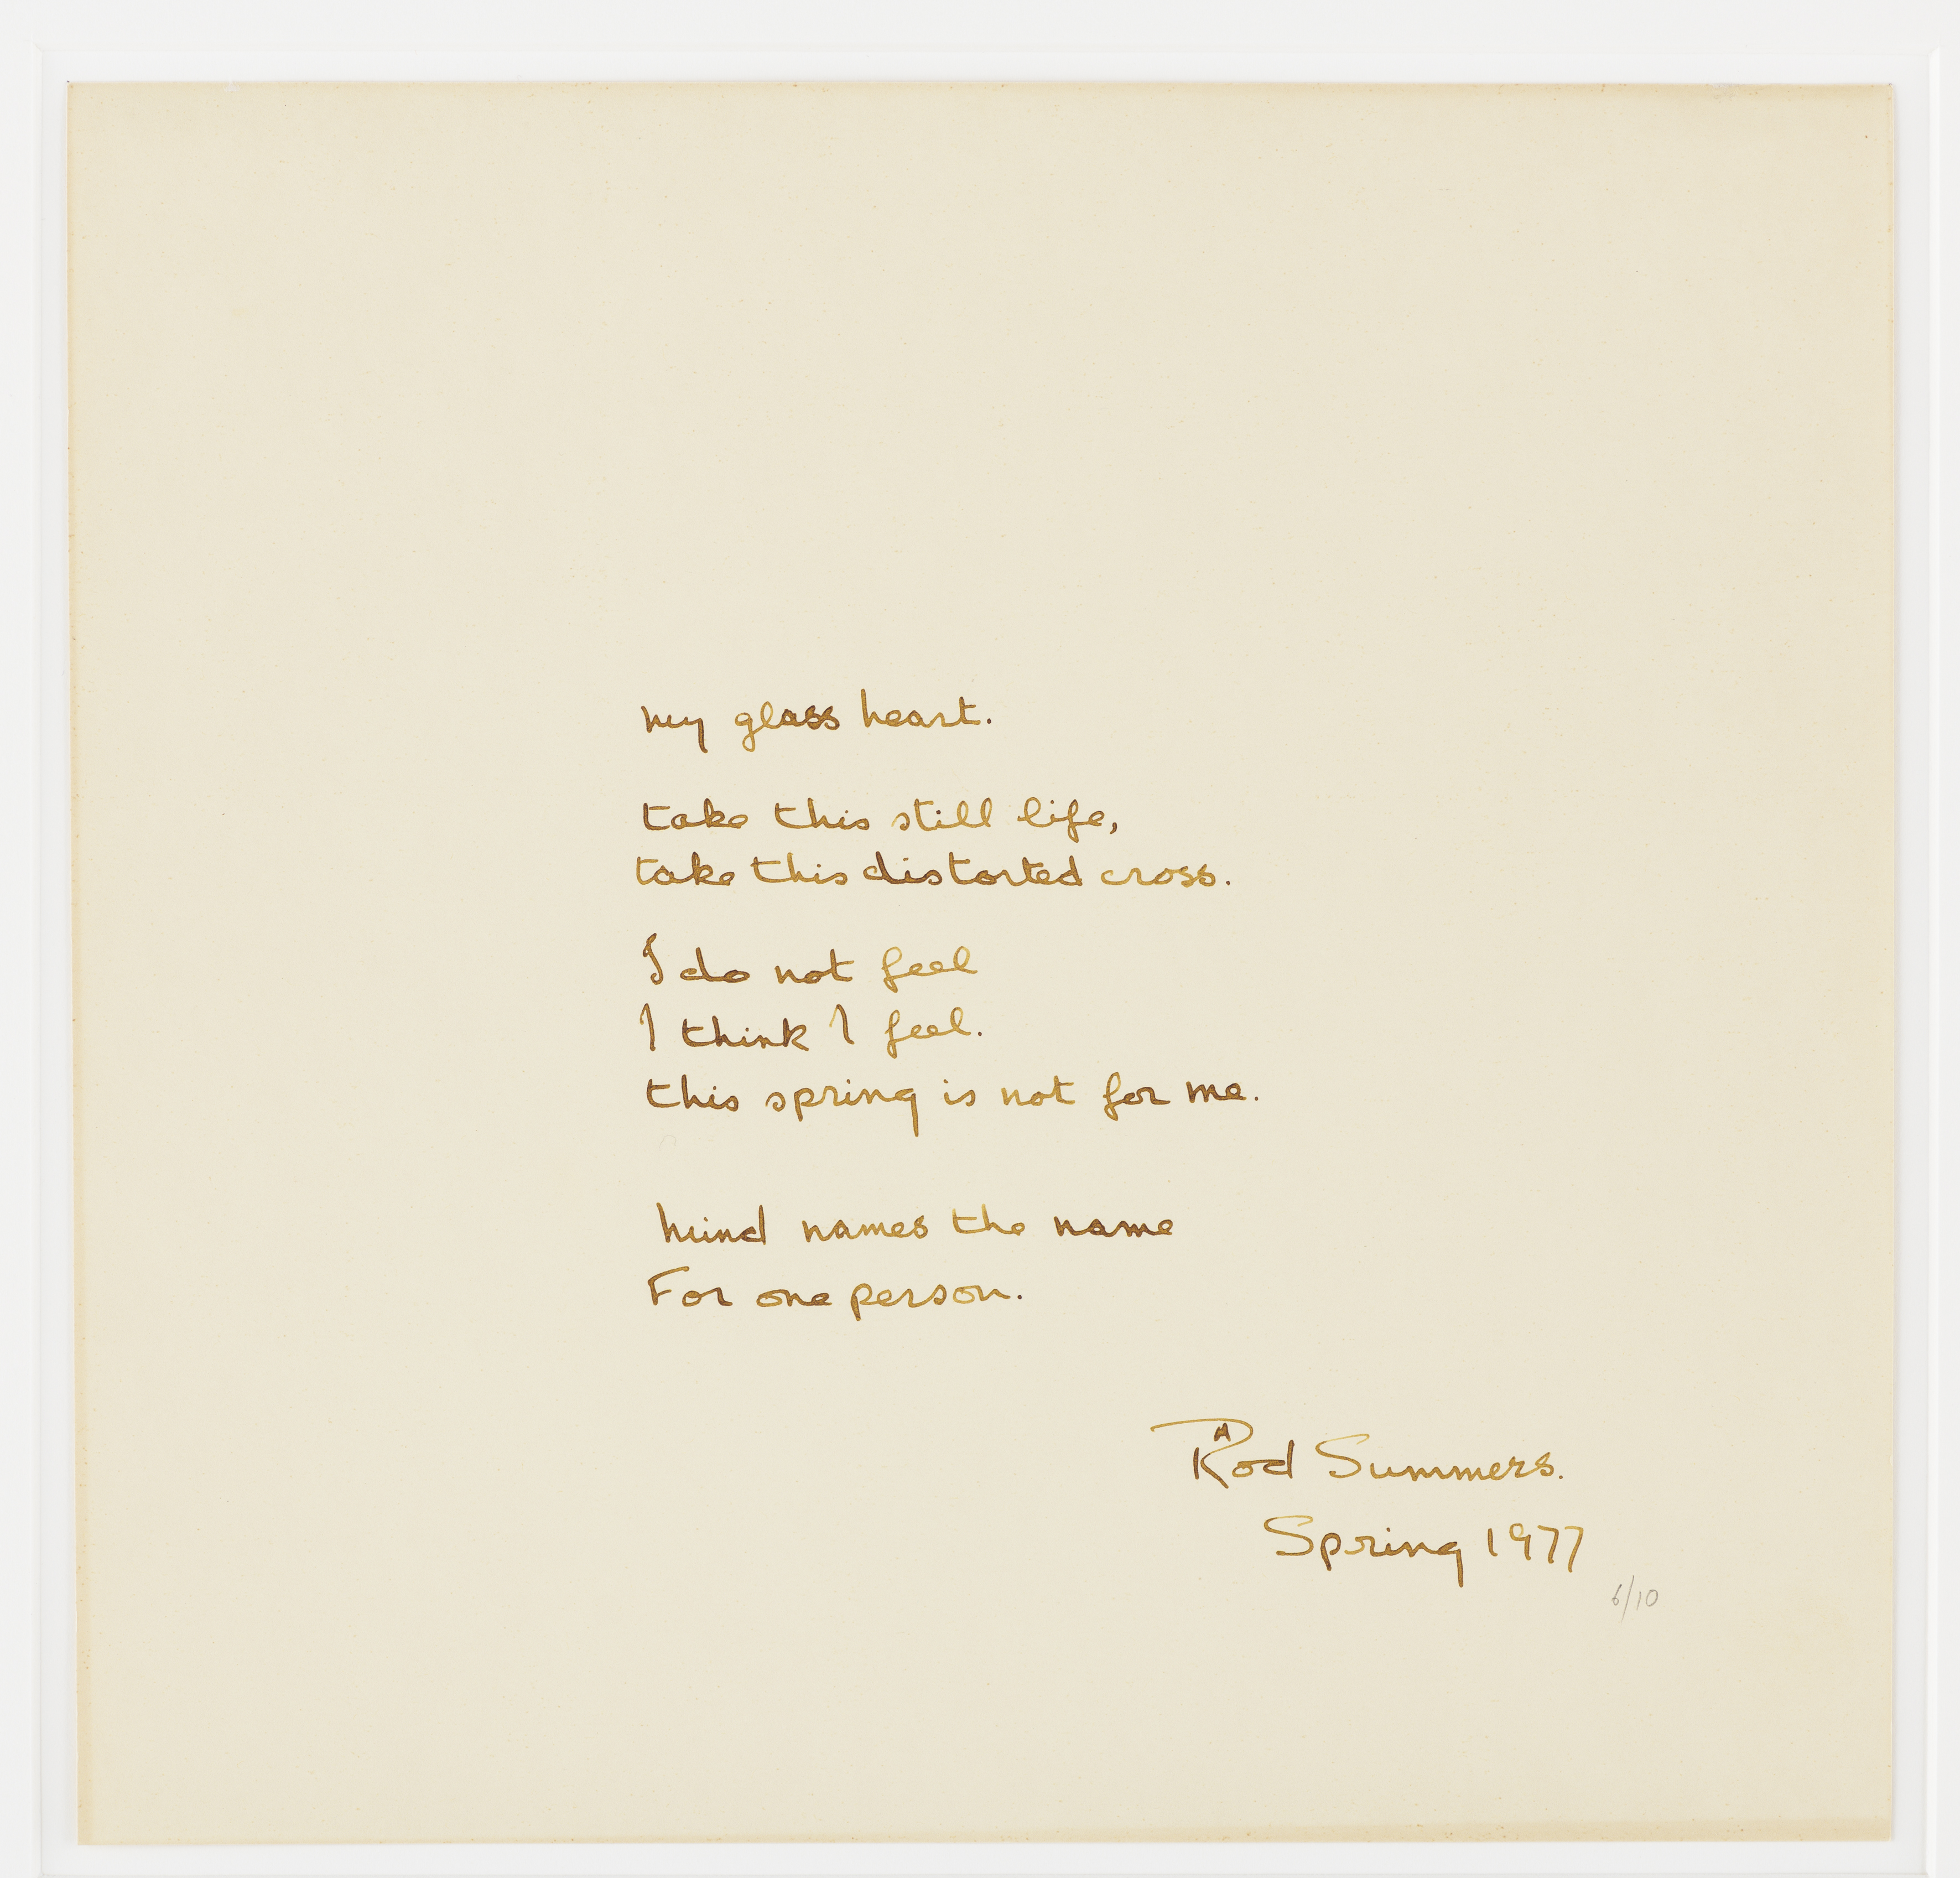 my glass heart.
take this still life,
take this distorted cross.
I do not feel
I think I feel.
this spring is not for me.
Mind names the name
For one person.
Rod Summers.
Spring 1977
6/10